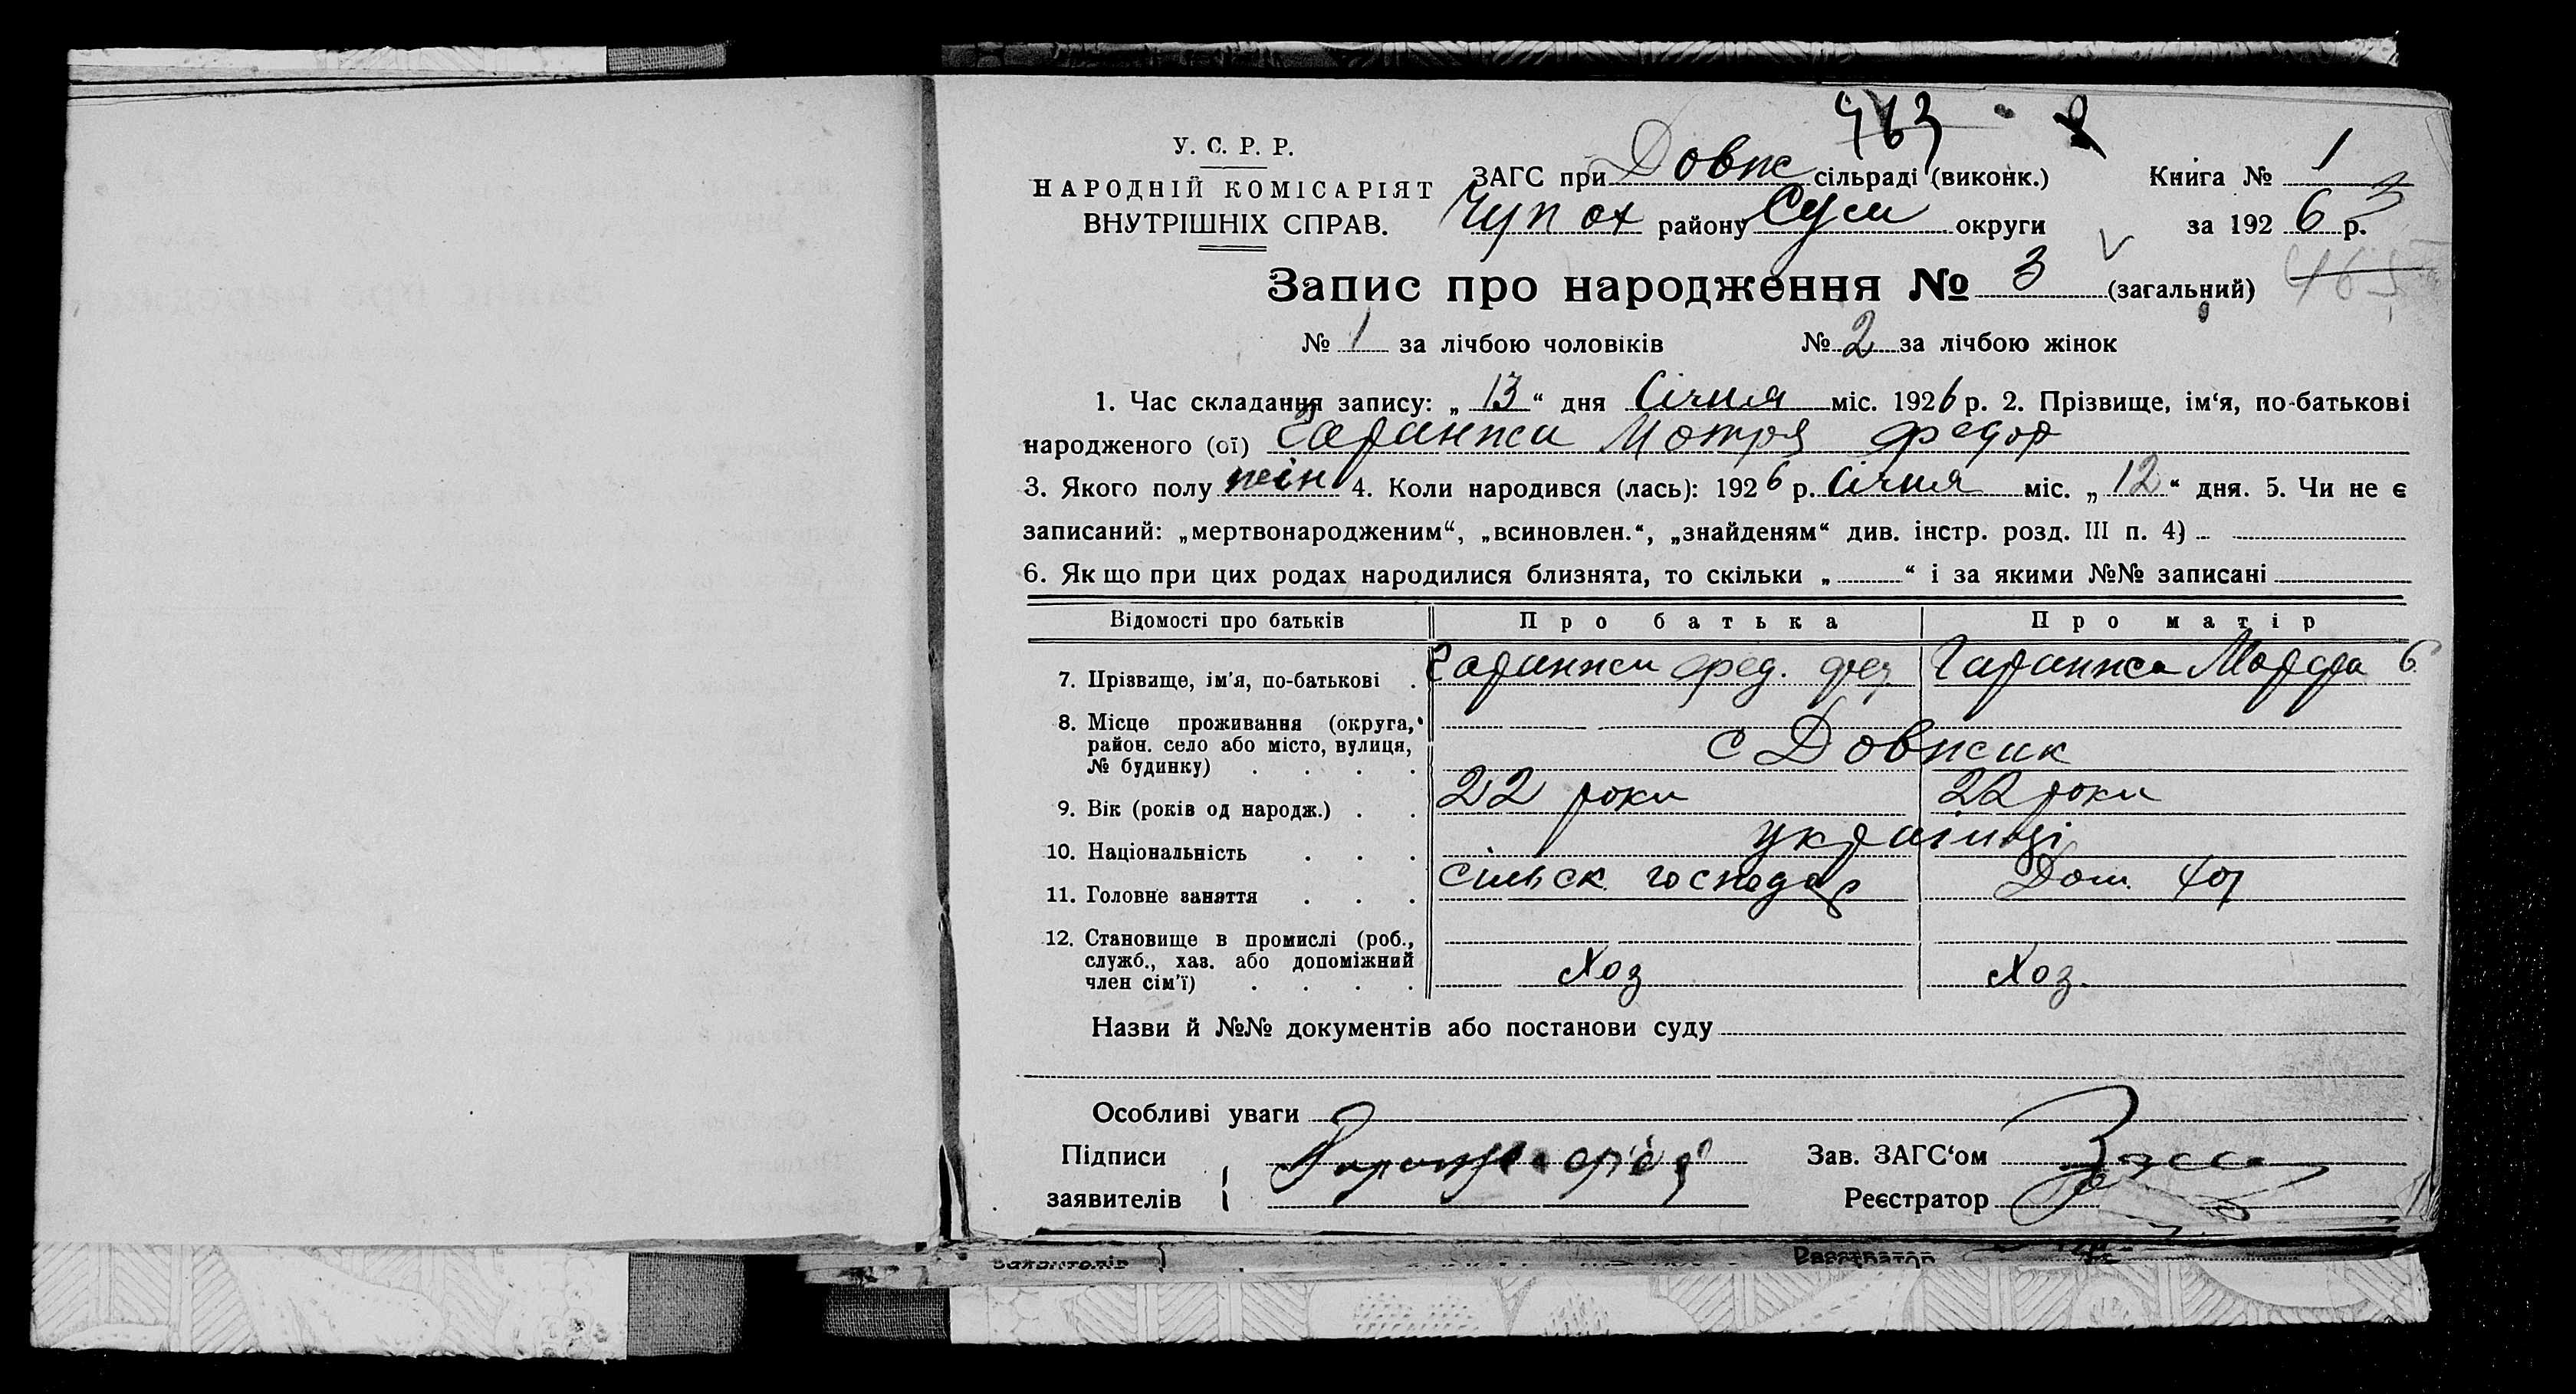 У. С. Р. Р.
НАРОДНІЙ КОМІСАРІЯТ
ВНУТРІШНІХ СПРАВ.
463
ЗАГС при Довж сільраді (виконк.) Книга № 1
Чупах району Сум округи за 1926 р.
Запис про народження № 3 (загальний) 463
№ 1 за лічбою чоловіків № 2 за лічбою жінок
1. Час складання запису: „ 13 “ дня Січня міс. 1926 р. 2. Прізвище, ім‘я, по-батькові
народженого (ої) Гаранжа Мотря Федор
3. Якого полу жін 4. Коли народився (лась): 1926 р. Січня міс. „ 12 “ дня. 5. Чи не є
записаний: „мертвонародженим“, „всиновлен.“, „знайденям“ див. інстр. розд. III п. 4)
6. Якщо при цих родах народилися близнята, то скільки „ “ і за якими №№ записані
Відомості про батьків Про батька Про матір
7. Прізвище, ім'я, по-батькові . Гаранжа Фед. Гаранжа
8. Місце проживання (округа,
район. село або місто, вулиця,
№ будинку) . . . . с Довжик
9. Вік (років од народж.) . . 22 роки 22 роки
10. Національність . . . українці
11. Головне заняття . . . сільск. господар Дом.
12. Становище в промислі (роб.,
служб., хаз. або допоміжний
член сім'ї) . . . . Хоз Хоз.
Назви й №№ документів або постанови суду
Особливі уваги
Підписи Зав. ЗАГС‘ом
заявителів Реєстратор
заявителів Реєстратор